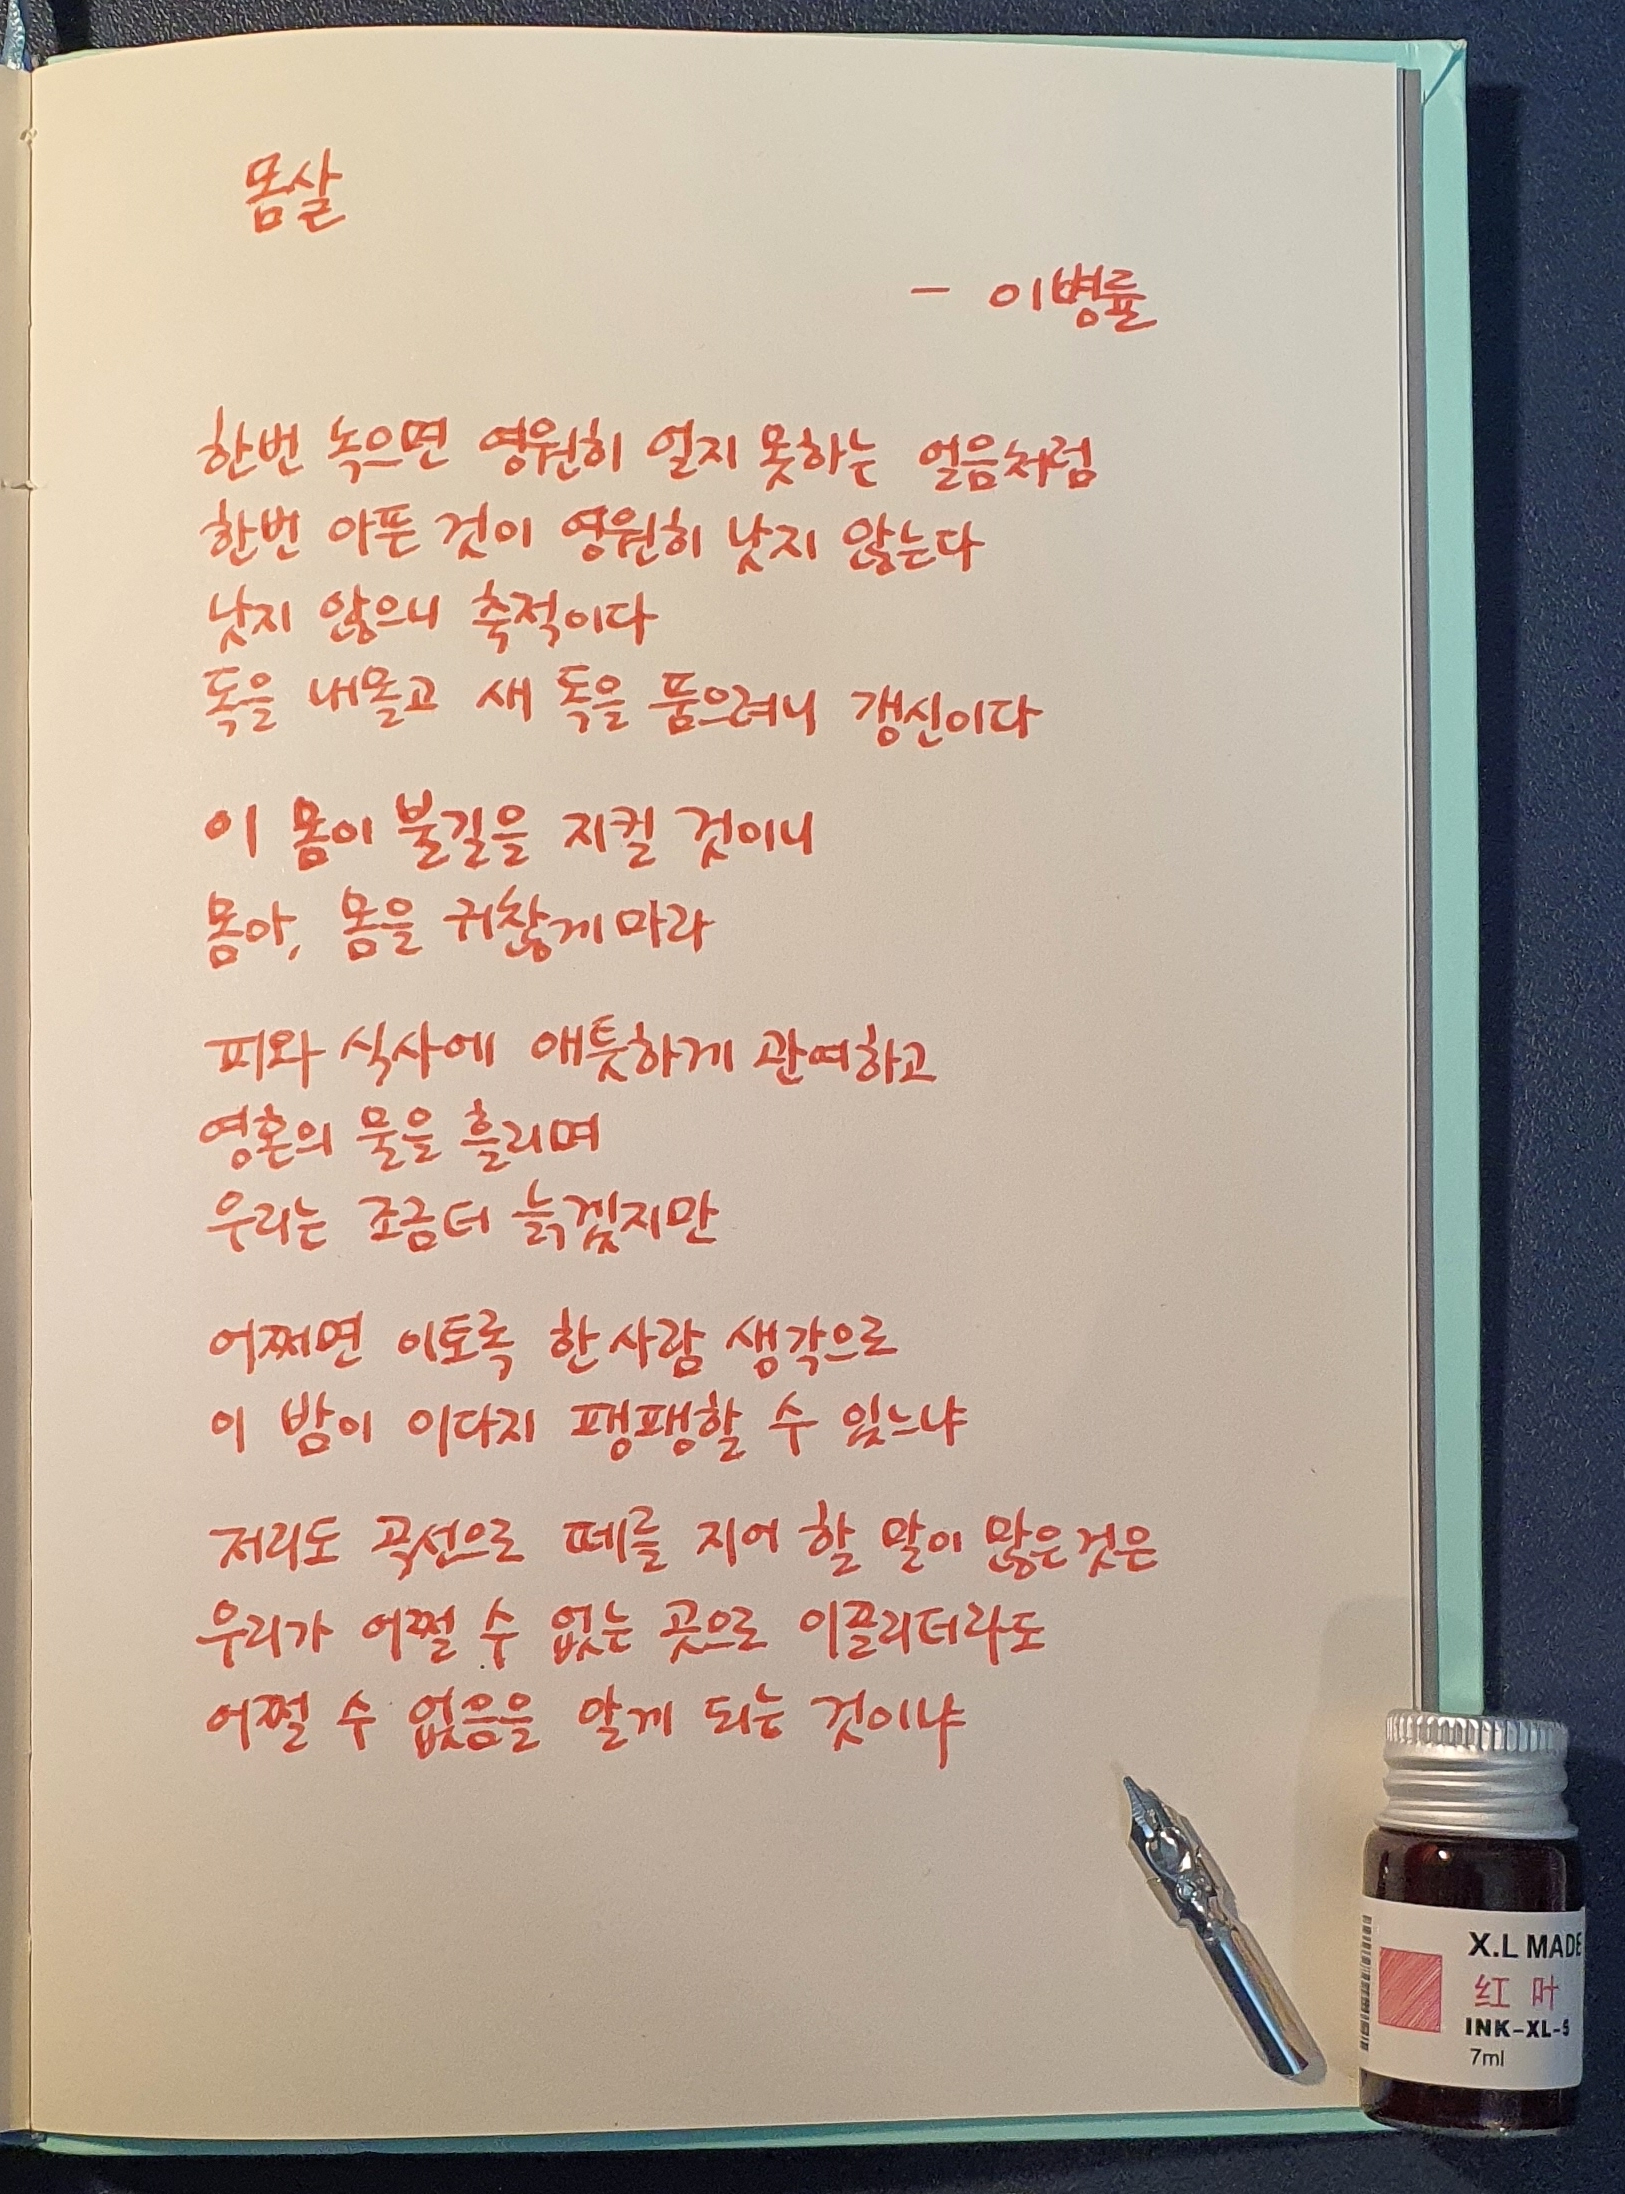 몸살
- 이병률
한번 녹으면 영원히 얼지 못하는 얼음처럼
한번 아픈 것이 영원히 낫지 않는다
낫지 않으니 축적이다
독을 내몰고 새 독을 품으려니 갱신이다
이 몸이 불길을 지킬 것이니
몸아, 몸을 귀찮게 마라
피와 식사에 애틋하게 관여하고
영혼의 물을 흘리며
우리는 조금 더 늙겠지만
어쩌면 이토록 한 사람 생각으로
이 밤이 이다지 팽팽할 수 있느냐
저리도 곡선으로 떼를 지어 할 말이 많은 것은
우리가 어쩔 수 없는 곳으로 이끌리더라도
어쩔 수 없음을 알게 되는 것이냐
X.L MADE
红 叶
INK-XL-5
7ml